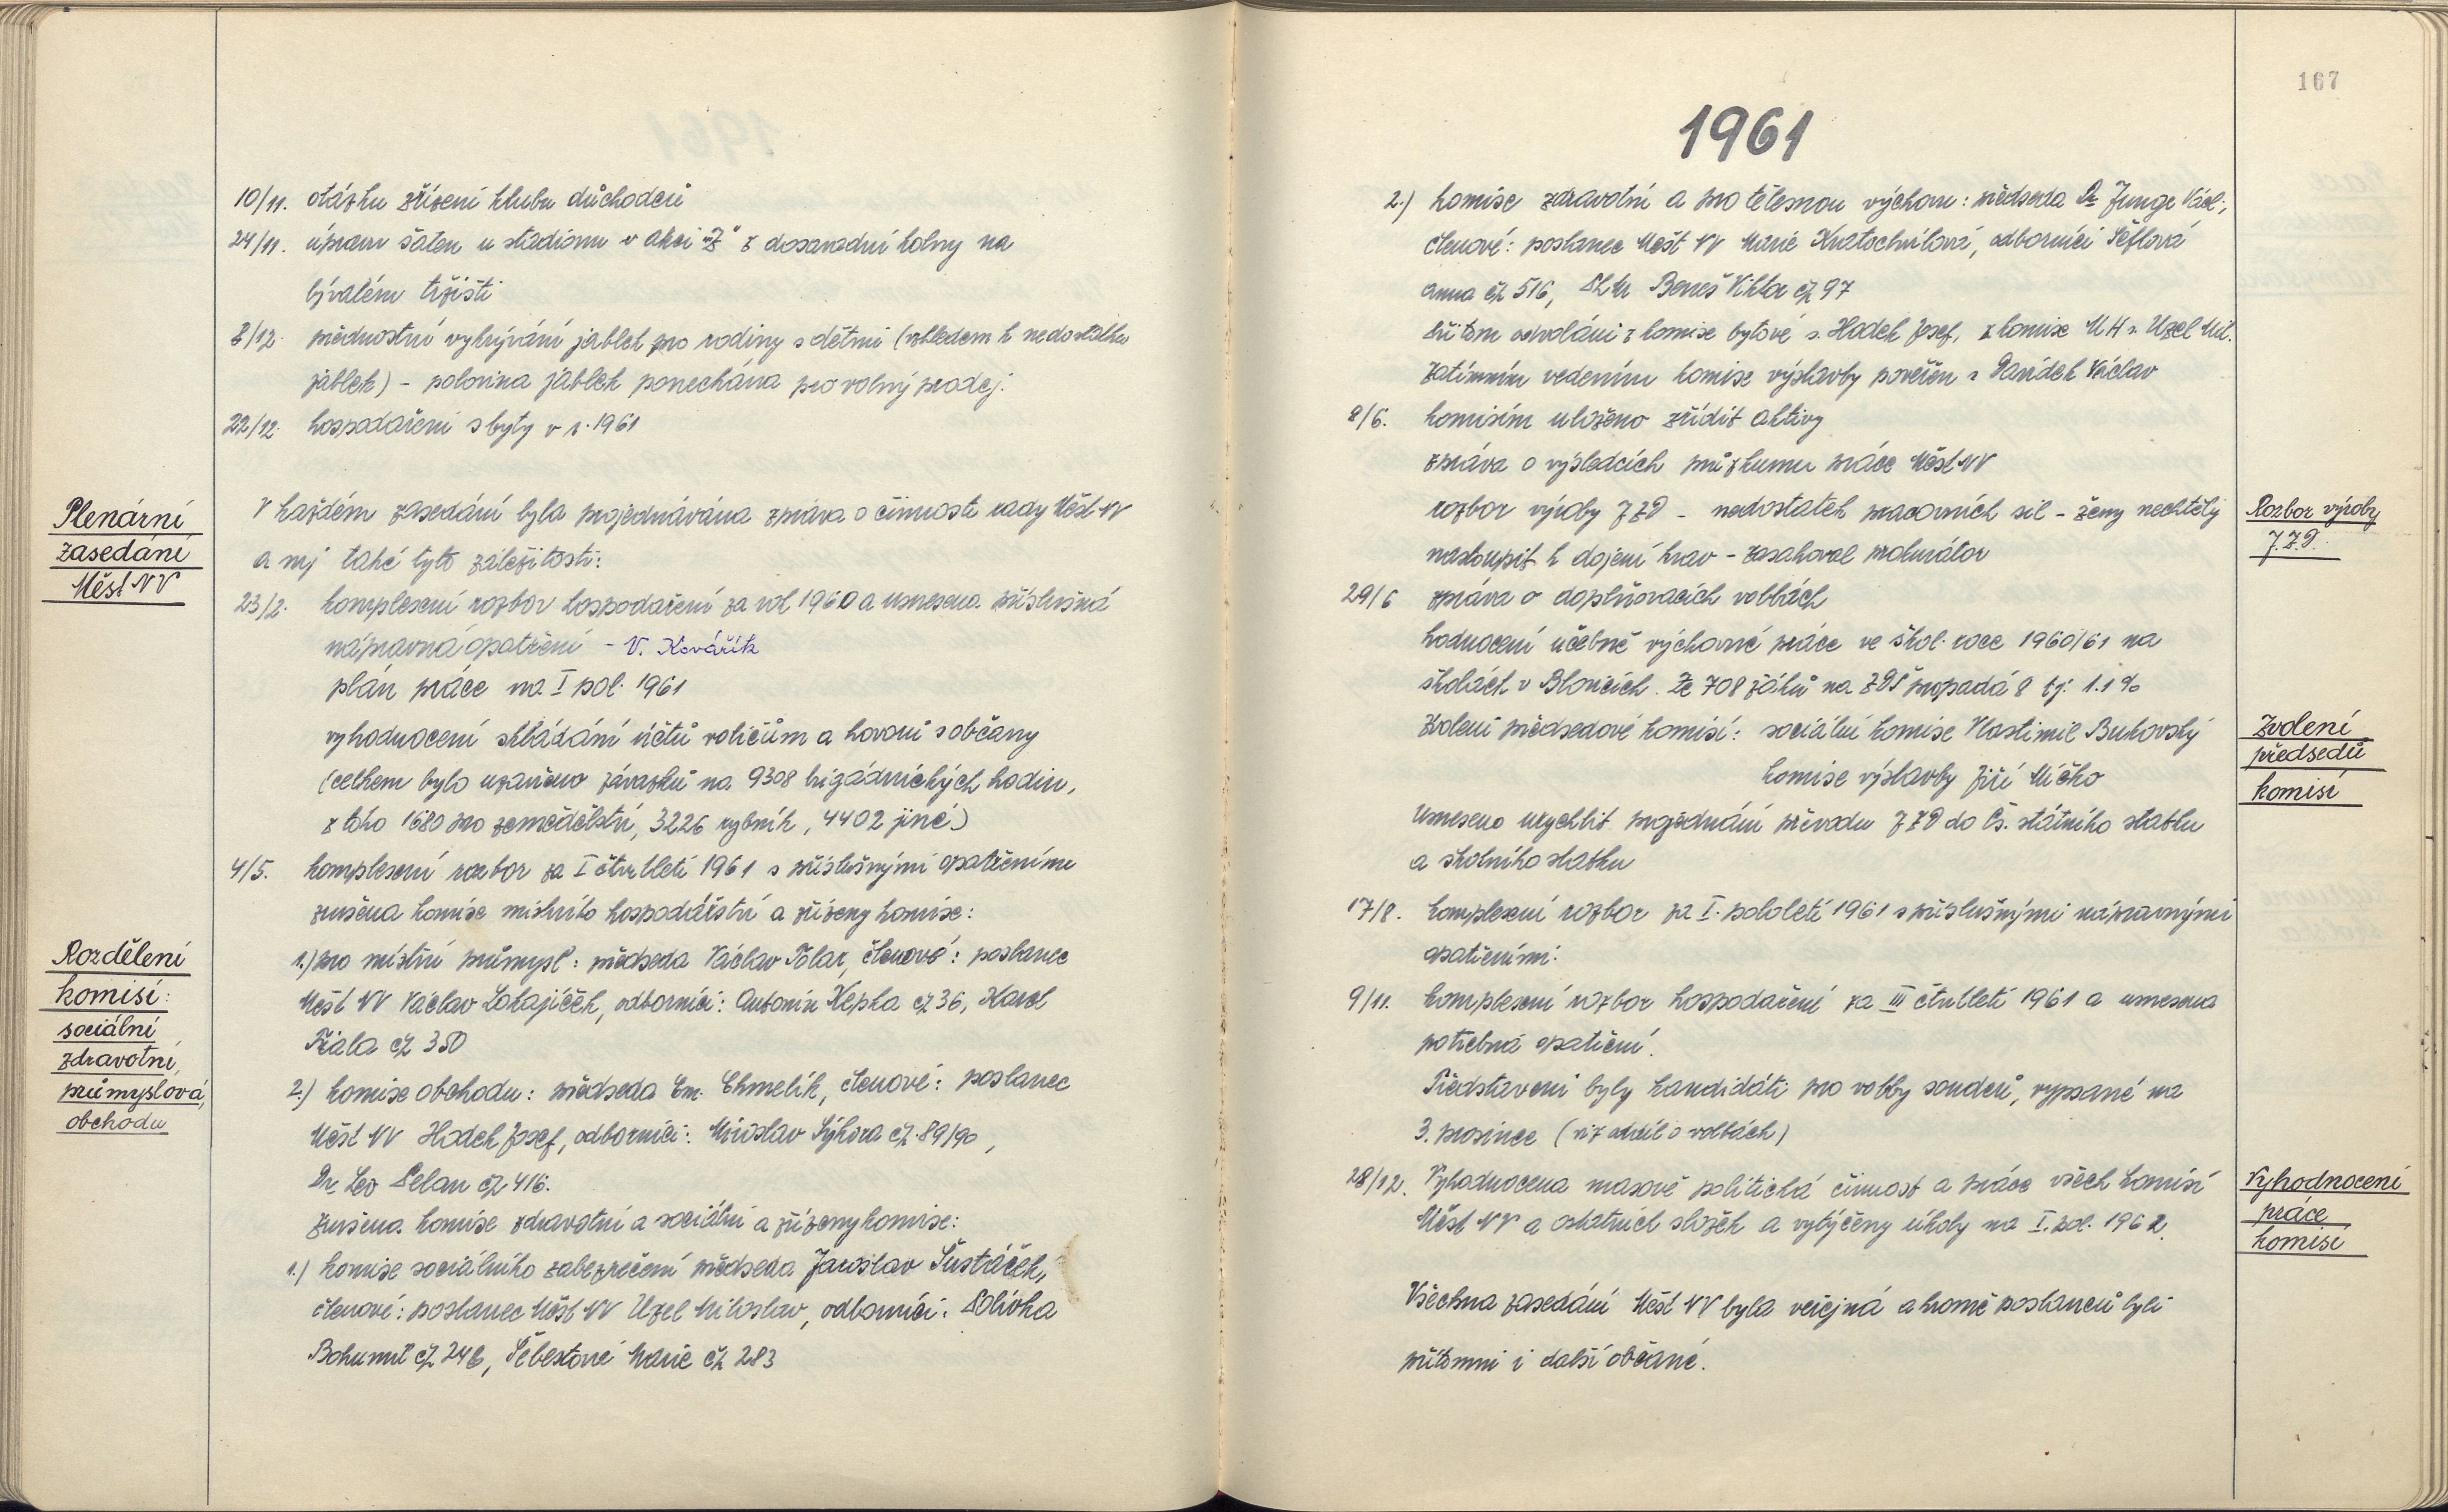 10/11. otázku zřízení klubu důchodců
24/11. úpravu šaten u stadionu v akci "Z" z dosavadní kolny na
bývalém tržišti
8/12. přednostní vykrývání jablek pro rodiny s dětmi (vzhledem k nedostatku
jablek) - polovina jablek ponechána pro volný prodej.
22/12. hospodaření s byty v r. 1961
Plenární
zasedání
Měst NV
V každém zasedání byla projednávána zpráva o činnosti rady Měst NV
a mj také tyto záležitosti:
23/2. komplexní rozbor hospodaření za rok 1960 a usnesena příslušná
nápravná opatření - V. Kovářík
plán práce na I pol. 1961
vyhodnocení skládání účtů voličům a hovorů s občany
(celkem bylo uzavřeno závazků na 9308 brigádnických hodin,
z toho 1680 pro zemědělství, 3226 rybník, 4402 jiné)
4/5. komplexní rozbor za I čtvrtletí 1961 s příslušnými opatřeními
zrušena komise místního hospodářství a zřízeny komise:
Rozdělení
komisí:
sociální
zdravotní,
průmyslová,
obchodu
1.) pro místní průmysl: předseda Václav Tolar, členové: poslanec
Měst NV Václav Lokajíček, odborníci: Antonín Kepka čp 36, Karel
Fiala čp 350
2.) komise obchodu: předseda Em. Chmelík, členové: poslanec
Měst NV Hodek Josef, odborníci: Miroslav Sýkora čp. 89/90,
Dr. Leo Pelan čp 416.
zrušena komise zdravotní a sociální a zřízeny komise:
1.) komise sociálního zabezpečení předseda Jaroslav Šustáček,
členové: poslanec Měst NV Uzel Miloslav, odborníci: Polívka
Bohumil čp 246, Šebestová Marie čp 283
167
1961
2.) komise zdravotní a pro tělesnou výchovu: předseda Dr Junge Václ.,
členové: poslanec Měst NV Marie Kratochvílová, odborníci Šeflová
Anna čp 516, Beneš Viktor čp 97
při tom odvoláni z komise bytové s. Hodek Josef, z komise MH s. Uzel Mil.
zatímním vedením komise výstavby pověřen s Davídek Václav
8/6. komisím uloženo zřídit aktivy
zpráva o výsledcích průzkumu práce Měst NV
rozbor výroby JZD - nedostatek pracovních sil - ženy nechtěly
nastoupit k dojení krav - zasahoval prokurátor
Rozbor výroby
J.Z.D.
29/6 zpráva o doplňovacích volbách
hodnocení učebně výchovné práce ve škol. roce 1960/61 na
školách v Blovicích. Ze 708 žáků na ZDŠ propadá 8 tj. 1.1%
zvoleni předsedové komisí: sociální komise Vlastimil Bukovský
komise výstavby Jiří Mičko
Zvolení
předsedů
komisí
Usneseno urychlit projednání převodu JZD do Čs. státního statku
a školního statku
17/8. komplexní rozbor za I. pololetí 1961 s příslušnými nápravnými
opatřeními.
9/11. komplexní rozbor hospodaření za III čtvrtletí 1961 a usnesena
potřebná opatření.
Představeni byly kandidáti pro volby soudců, vypsané na
3. prosince (viz oddíl o volbách)
28/12. Vyhodnocena masově politická činnost a práce všech komisí
Měst NV a ostatních složek a vytýčeny úkoly na I. pol. 1962.
Vyhodnocení
práce
komisí
Všechna zasedání Měst NV byla veřejná a kromě poslanců byli
přítomni i další občané.